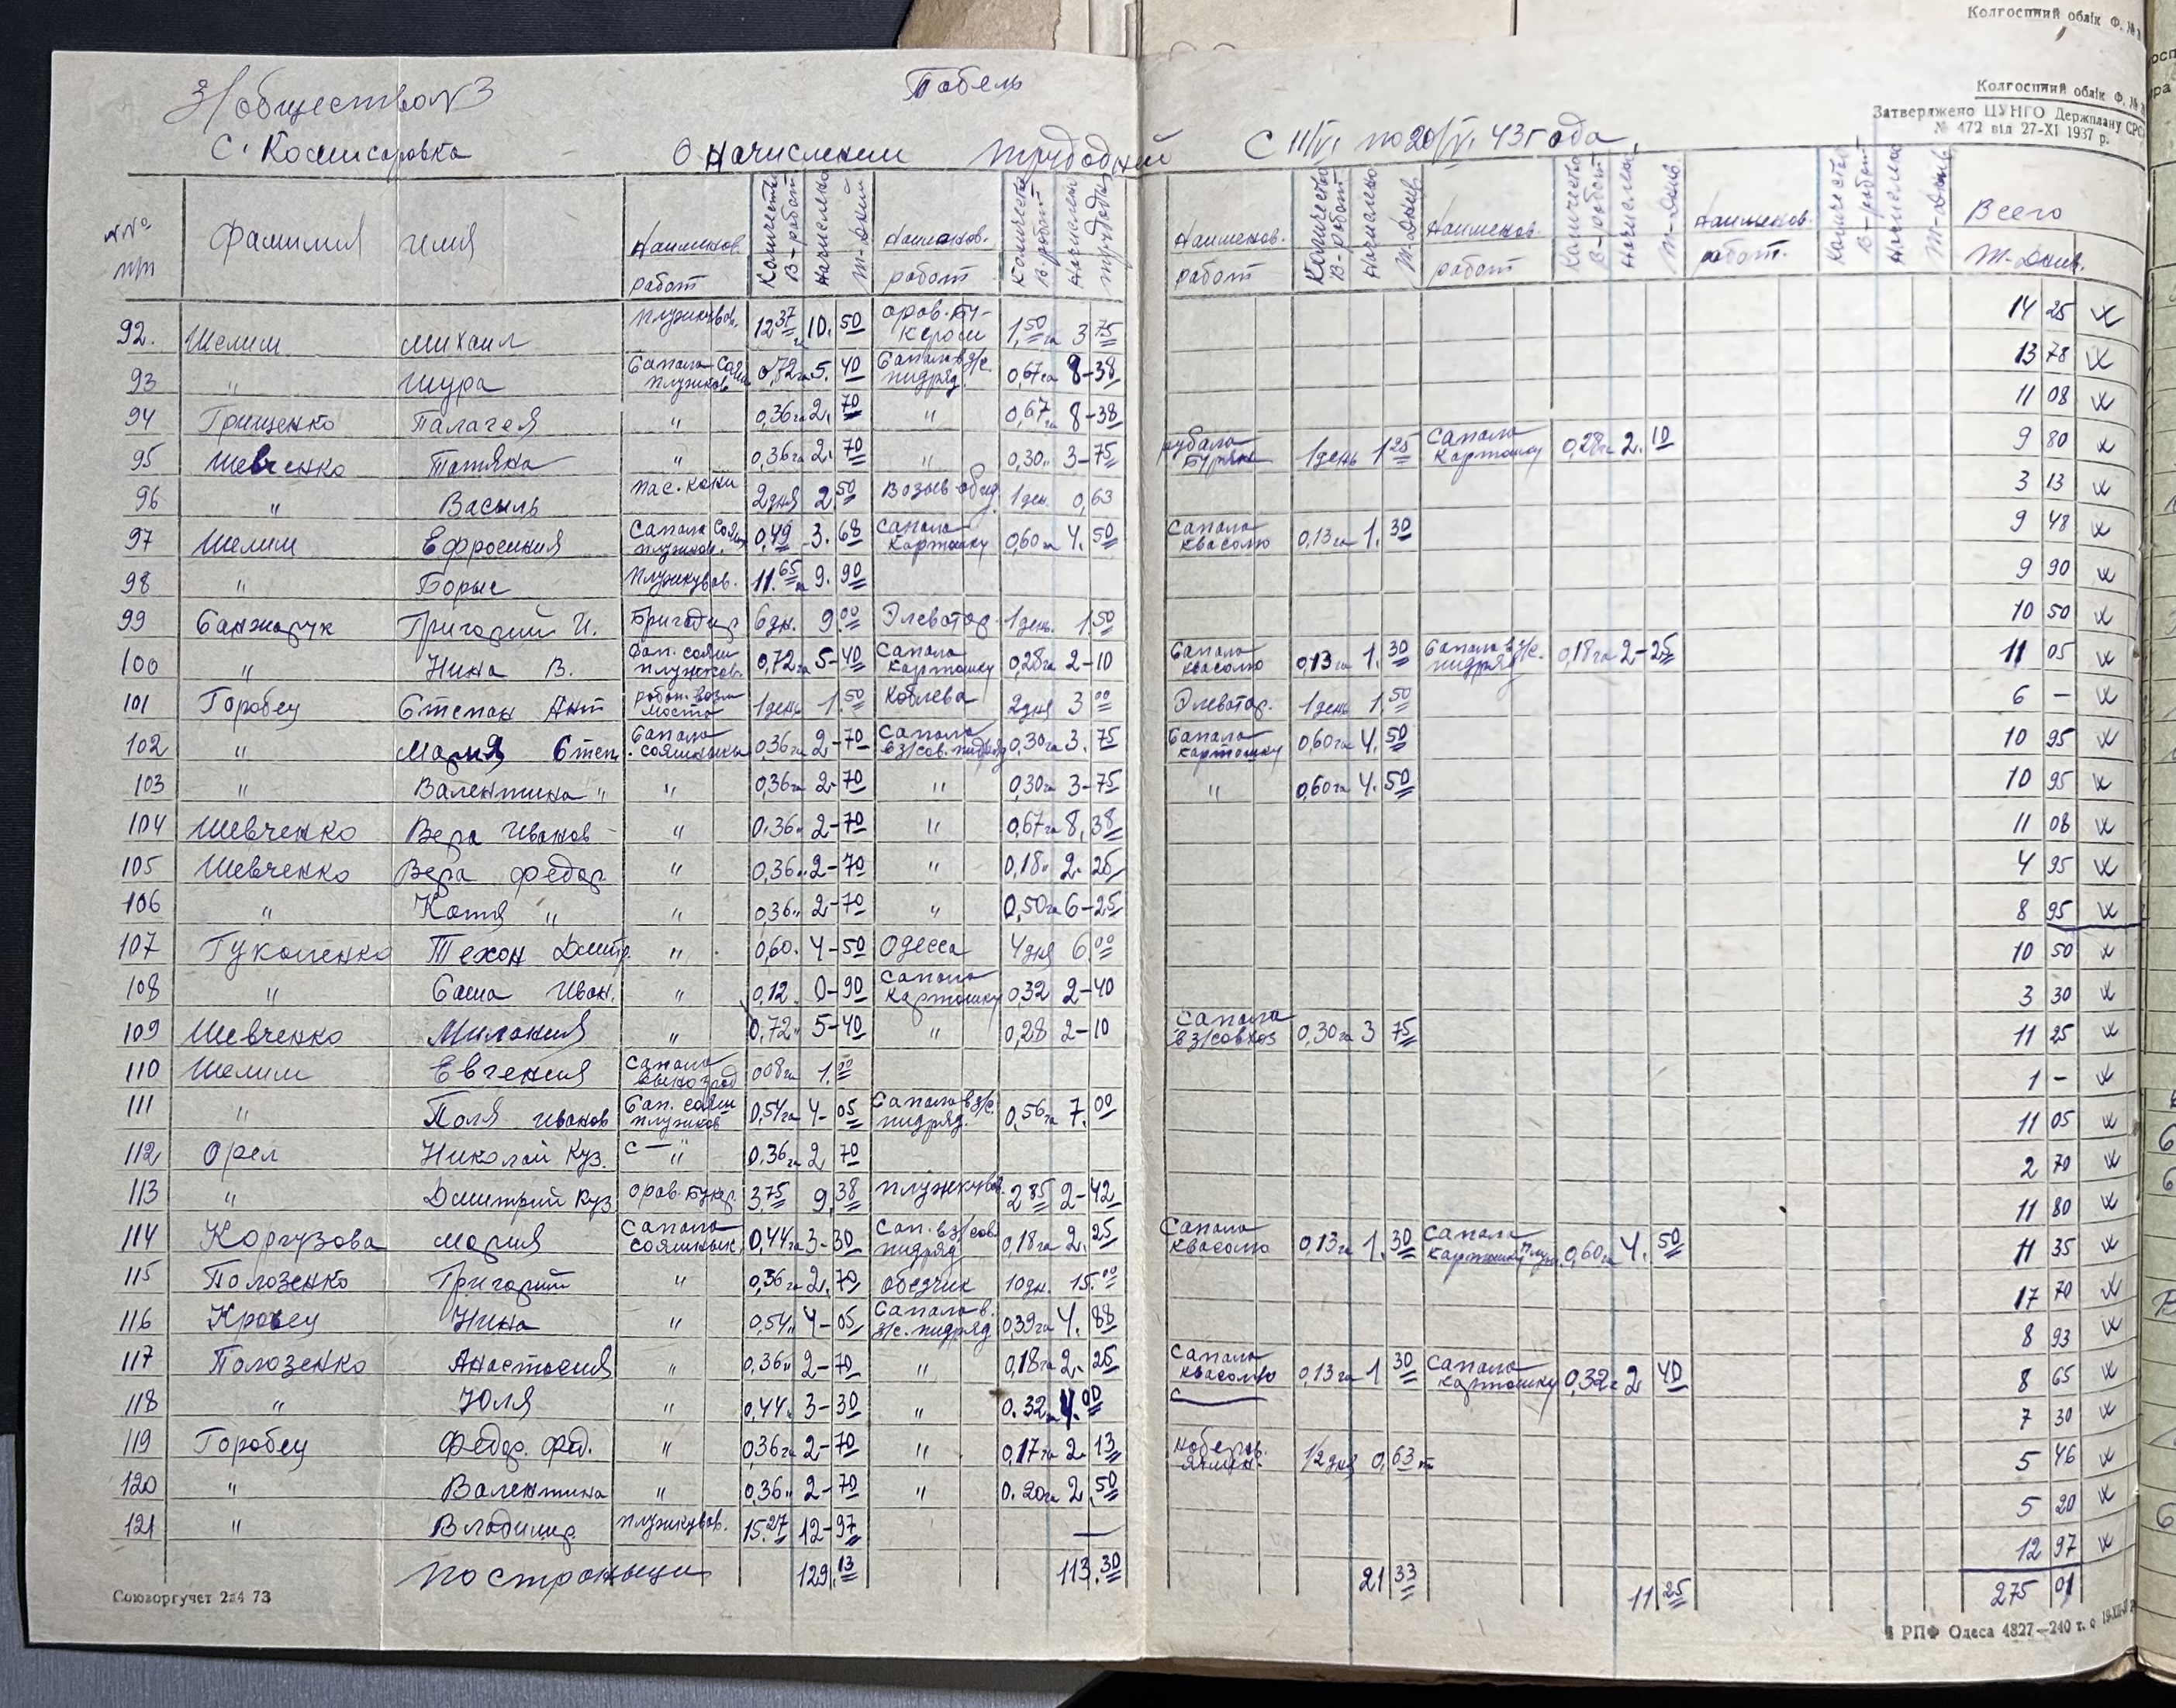 Колгоспний облік Ф. №
Колгоспний облік Ф. №
Затверджено ЦУНГО Держплану СРСР
№ 472 від 27-XI 1937 р.
З/общество N3 Табель
С. Комисаровка О начислении трудодней С 11/VI по 20/VI 43 года.
№№ п/п Фамилия имя Наименов. работ Количество В-работ Начислено Т-Дней Наименов. работ Количеств в. работ Начислен трудодн. Наименов. работ Количество В-работ Начислено Т-Днев Наименов. работ Количество В-работ Начислен Т-Днев Наименов. работ. Количество В-работ Начислено Т-Днив Всего Т-Днив.
92. Шелит михаил плужкував. 12 37 га 10. 50 орав. Бу-кером 1,50 га 3 75 14 25
93 " Шура Сапала Соян плужков 0,72 га 5. 40 Сапала в з/с. пидряд. 0,67 га 8-38 13 78
94 Грищенко Палагея " 0,36 га 2. 70 " 0,67 га 8-38 11 08
95 Шевченко Татяна " 0,36 га 2. 70 " 0,30 " 3-75 рубала Бурян 1 день 1 25 Сапала картошку 0,28 га 2. 10 9 80
96 " Василь пас. кони 2 дня 2 50 Возыв обед 1 ден. 0,63 3 13
97 Шелит Ефросиния Сапала Соян плужков. 0,49 3. 68 Сапала картошку 0,60 га 4. 50 Сапала квасолю 0,13 га 1. 30 9 48
98 " Борис плужкував. 11. 65 га 9. 90 9 90
99 Санжарук Григорий И. Бригадир 6 дн. 9. 00 Элеватор 1 день. 1. 50 10 50
100 " Нина В. Сап. сояш плужков. 0,72 га 5-40 Сапала картошку 0,28 га 2-10 Сапала квасолю 0,13 га 1. 30 Сапала в з/с. пидряд 0,18 га 2-25 11 05
101 Горобец Степан Ант работ. возле моста 1 день 1. 50 Коблева 2 дня 3 00 Элеватор. 1 день 1. 50 6 —
102 " Мария Степ. Сапала сояшныки 0,36 га 2-70 Сапала в з/сов. пидряд 0,30 га 3. 75 Сапала картошку 0,60 га 4. 50 10 95
103 " Валентина " " 0,36 га 2-70 " 0,30 га 3-75 " 0,60 га 4. 50 10 95
104 Шевченко Вера Иванов " 0,36 " 2-70 " 0,67 га 8,38 11 08
105 Шевченко Вера Федор " 0,36 " 2-70 " 0,18 " 2. 25 4 95
106 " Катя " " 0,36 " 2-70 " 0,50 га 6-25 8 95
107 Гуколенко Техон Дмитр. " 0,60. 4-50 Одесса 4 дня 6. 00 10 50
108 " Саша Иван. " 0,12. 0-90 Сапала картошку 0,32 2-40 3 30
109 Шевченко Милания " 0,72 " 5-40 " 0,28 2-10 Сапала в з/совхоз 0,30 га 3 75 11 25
110 Шелит Евгения Сапала выноград 008 га 1. 00 1 -
111 " Поля Иванов Сап. сояш плужков 0,54 га 4-05 Сапала в з/с. пидряд. 0,56 га 7. 00 11 05
112 Орел Николай Куз. с — " 0,36 га 2 70 2 70
113 " Дмитрий Куз орав. Букер 3,75 9,38 плужкував. 2 85 2-42 11 80
114 Коргузова мария Сапала сояшнык. 0,44 га 3-30 Сап. в з/сов пидряд 0,18 га 2. 25 Сапала квасолю 0,13 га 1. 30 Сапала картошку 0,60 га 4. 50 11 35
115 Полозенко Григорий " 0,36 га 2. 70 обездчик 10 дн. 15. 00 17 70
116 Кровец Нина " 0,54 " 4-05 Сапала в. з/с. пидряд 0,39 га 4. 88 8 93
117 Полозенко Анастасия " 0,36 " 2-70 " 0,18 га 2. 25 Сапала квасолю 0,13 га 1 30 Сапала картошку 0,32 г 2 40 8 65
118 " Юля " 0,44. 3-30 " 0. 32 га 4. 00 7 30
119 Горобец Федор. Фед. " 0,36 га 2-70 " 0,17 га 2. 13 1/2 дня 0,63 5 46
120 " Валентина " 0,36 " 2-70 " 0. 20 га 2. 50 5 20
121 " Владимир плужкував. 15. 27 12-97 — 12 97
по страныци 129. 13 113. 30 21 33 11 25 275 01
Союзоргучет 234 73
РПФ Одеса 4827—240 т.